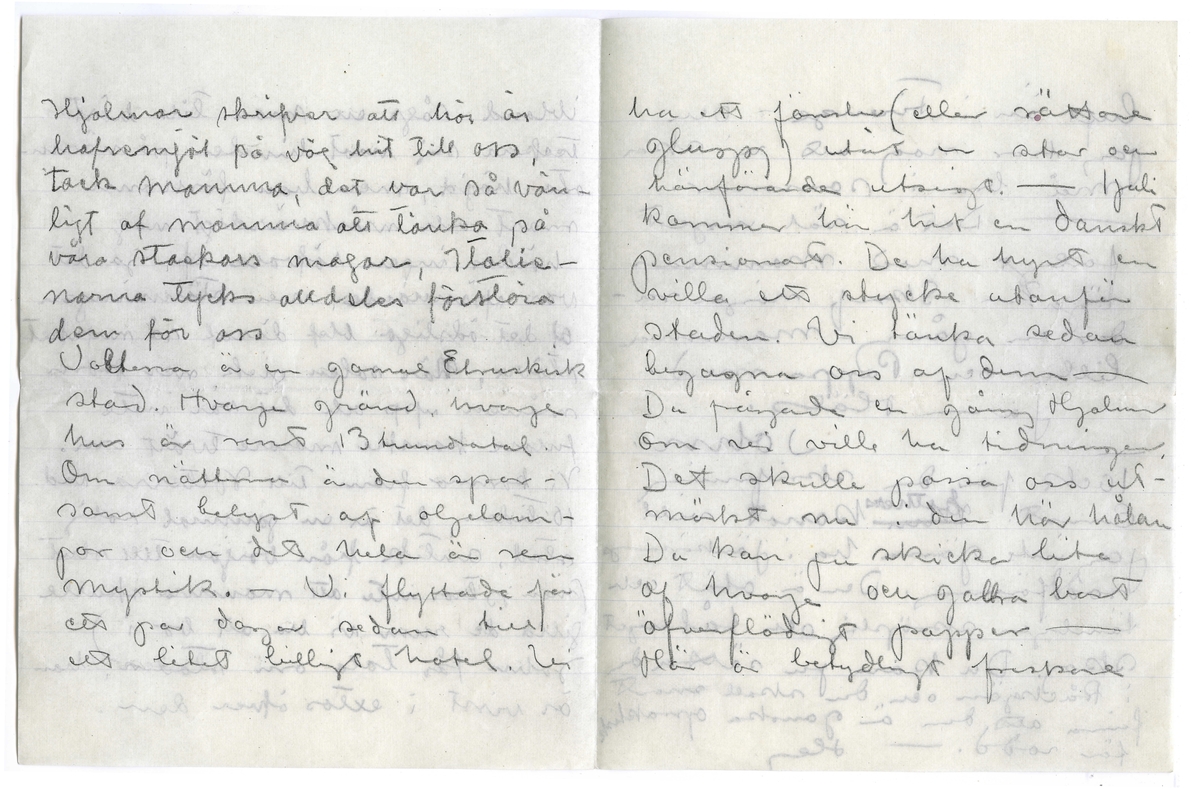 Hjalmar skrifver att hos är
hafremjöl på väg hit till oss,
tack mamma, det var så vän-
ligt af mamma att tänka på
våra stackars magar, Italie-
narna tycks alldeles förstöra
dem för oss
Volterra är en gammal Etruskisk
stad. Hvarje gränd, hvarje
hus är rent 13 hundratal
Om nätterna är den spar-
samt belyst af oljelam-
por och det hela är ren
mystik. — Vi flyttade för
ett par dagar sedan till
ett litet billigt hotel. Vi
ha ett fönster (eller rättare
glugg) utåt en stor och
hänförande utsigt. — I juli
kommer här hit en danskt
pensionat. De ha hyrt en
villa ett stycke utanför
staden. Vi tänka sedan
begagna oss af dem —
Du frågade en gång Hjalmar
om vi ville ha tidningen.
Det skulle passa oss ut-
märkt nu i den här hålan
Du kan ju skicka lite
af hvarje och gallra bort
öfverflödigt papper —
Här är betydligt friskare